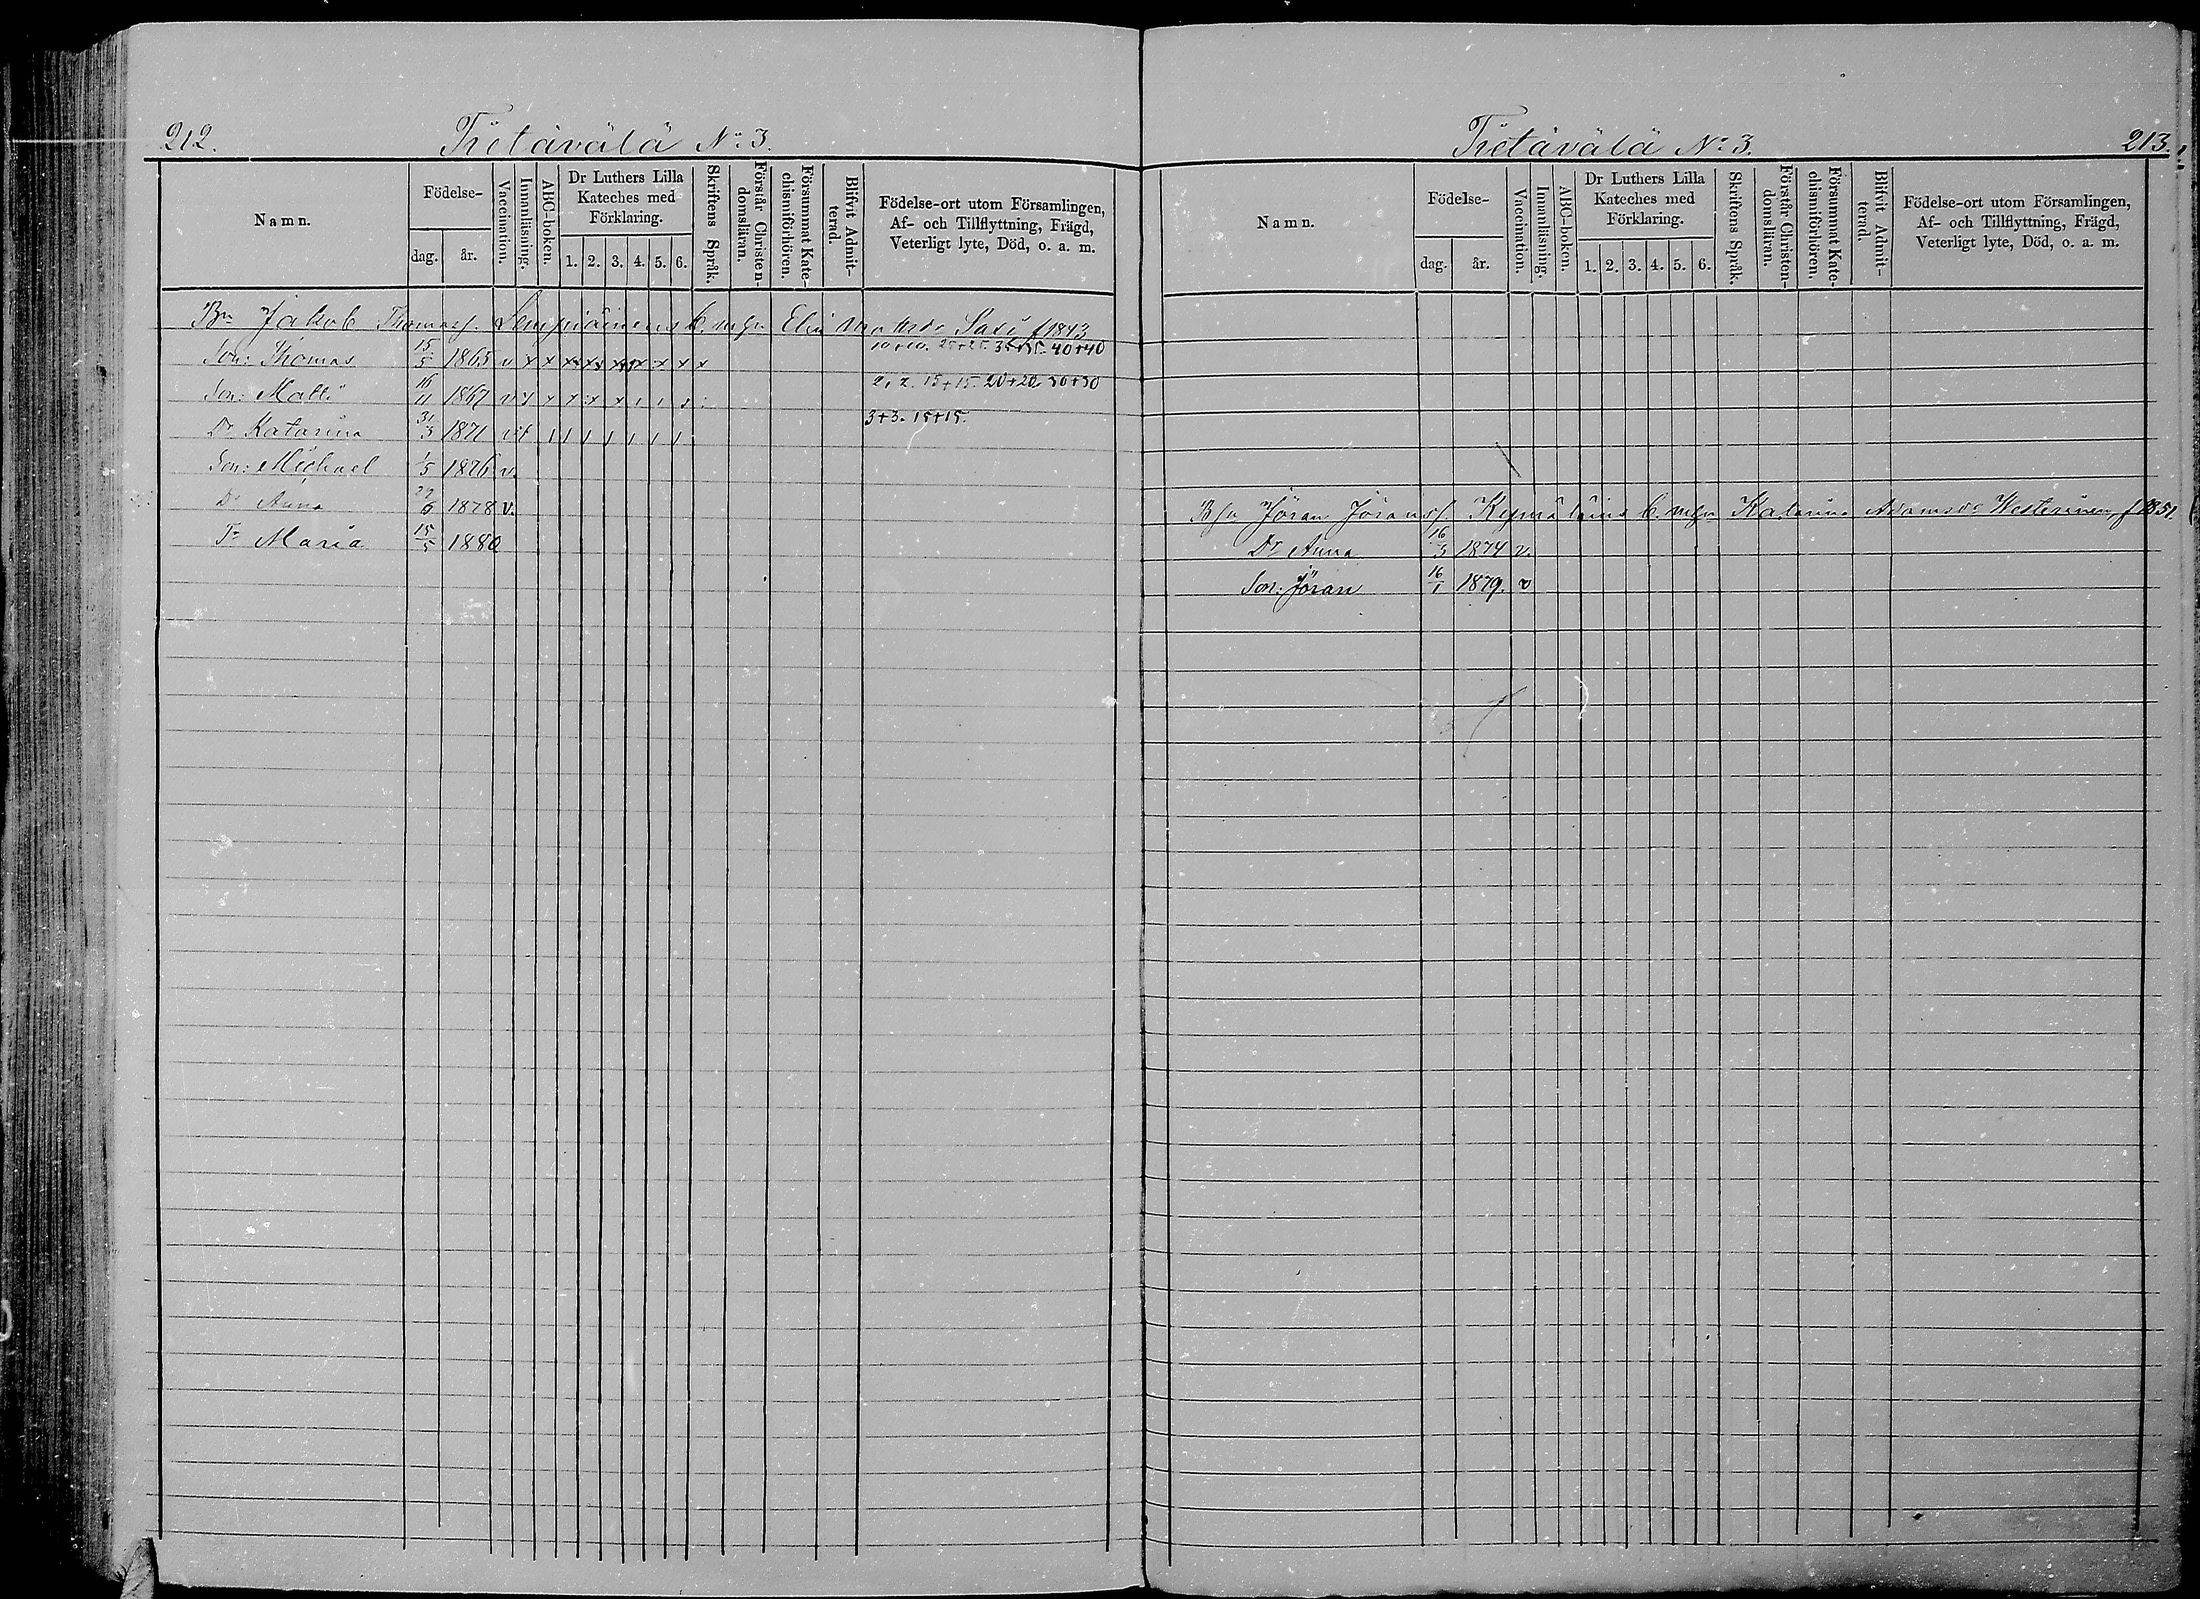 212.
Tietävälä No 3.
Namn.
Födelse-
dag.
år.
Vaccination.
Innanläsning.
ABC-boken.
Dr Luthers Lilla
Kateches med
Förklaring.
1. 2. 3. 4. 5. 6.
Skriftens Språk.
Förstår Christen-
domsläran.
Försummat Kate-
chismiförhören.
Blifvit Admit-
terad.
Födelse-ort utom Församlingen,
Af- och Tillflyttning, Frägd,
Veterligt lyte, Död, o. a. m.
Bn Jakob Thomasf. Lempiäinens b. m. Elin f 1843
Son: Thomas 15/5 1865 v x x x x x x x x x 10+10. 25+25. 35+35. 40+40
Son: Matts 16/11 1867 v x x x x x 2+2. 15+15. 20+20. 30+30
Dr Katarina 31/3 1871 v 3+3. 15+15.
Son: Michael 1/5 1876 v.
Dr Anna 1878 v.
Maria 15/5 1880
213.
Tietävälä No 3.
Namn.
Födelse-
dag.
år.
Vaccination.
Innanläsning.
ABC-boken.
Dr Luthers Lilla
Kateches med
Förklaring.
1. 2. 3. 4. 5. 6.
Skriftens Språk.
Förstår Christen-
domsläran.
Försummat Kate-
chismiförhören.
Blifvit Admit-
terad.
Födelse-ort utom Församlingen,
Af- och Tillflyttning, Frägd,
Veterligt lyte, Död, o. a. m.
Jöran Jöransf. b. m. Katarina Adamsdr Westerinen f 1851
Dr Anna 16/3 1874 v.
Son: Jöran 16/1 1879. v